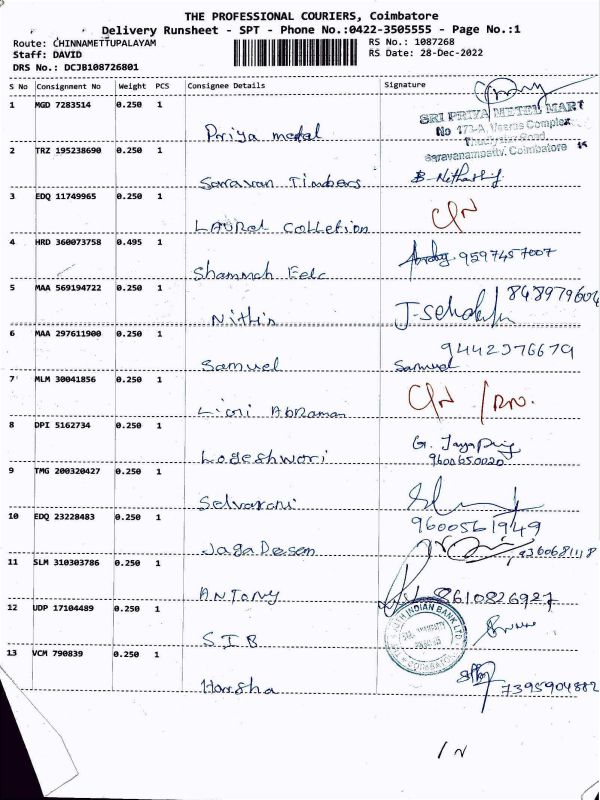 THE PROFESSIONAL COURIERS, Coimbatore
Delivery Runsheet - SPT - Phone No.:0422-3505555 - Page No.:1
Route: CHINNAMETTUPALAYAM RS No.: 1087268
Staff: DAVID RS Date: 28-Dec-2022
DRS No.: DCJB108726801
S No Consignment No Weight PCS Consignee Details Signature
1 MGD 7283514 0.250 1
Priya metal
SRI PRIYA METEL MART
No 173-A, Complex
Road
Saravanampatty, Coimbatore
2 TRZ 195238690 0.250 1
Saravan Timbers
3 EDQ 11749965 0.250 1
LAURel Colletion C/N
4 HRD 360073758 0.495 1
Shammah Eelc 9597457007
5 MAA 569194722 0.250 1
Nithin 848979604
6 MAA 297611900 0.250 1
9442376679
Samuel Samuel
7 MLM 30041856 0.250 1
Abraman C/N
8 DPI 5162734 0.250 1
Logeshwari G. 9600650020
9 TMG 200320427 0.250 1
Selvarani
9600561949
10 EDQ 23228483 0.250 1
JagaDesan 9360681118
11 SLM 310303786 0.250 1
ANTONY 8610826927
12 UDP 17104489 0.250 1
S.I.B
SOUTH INDIAN BANK LTD
13 VCM 790839 0.250 1
Harsha 7395904882